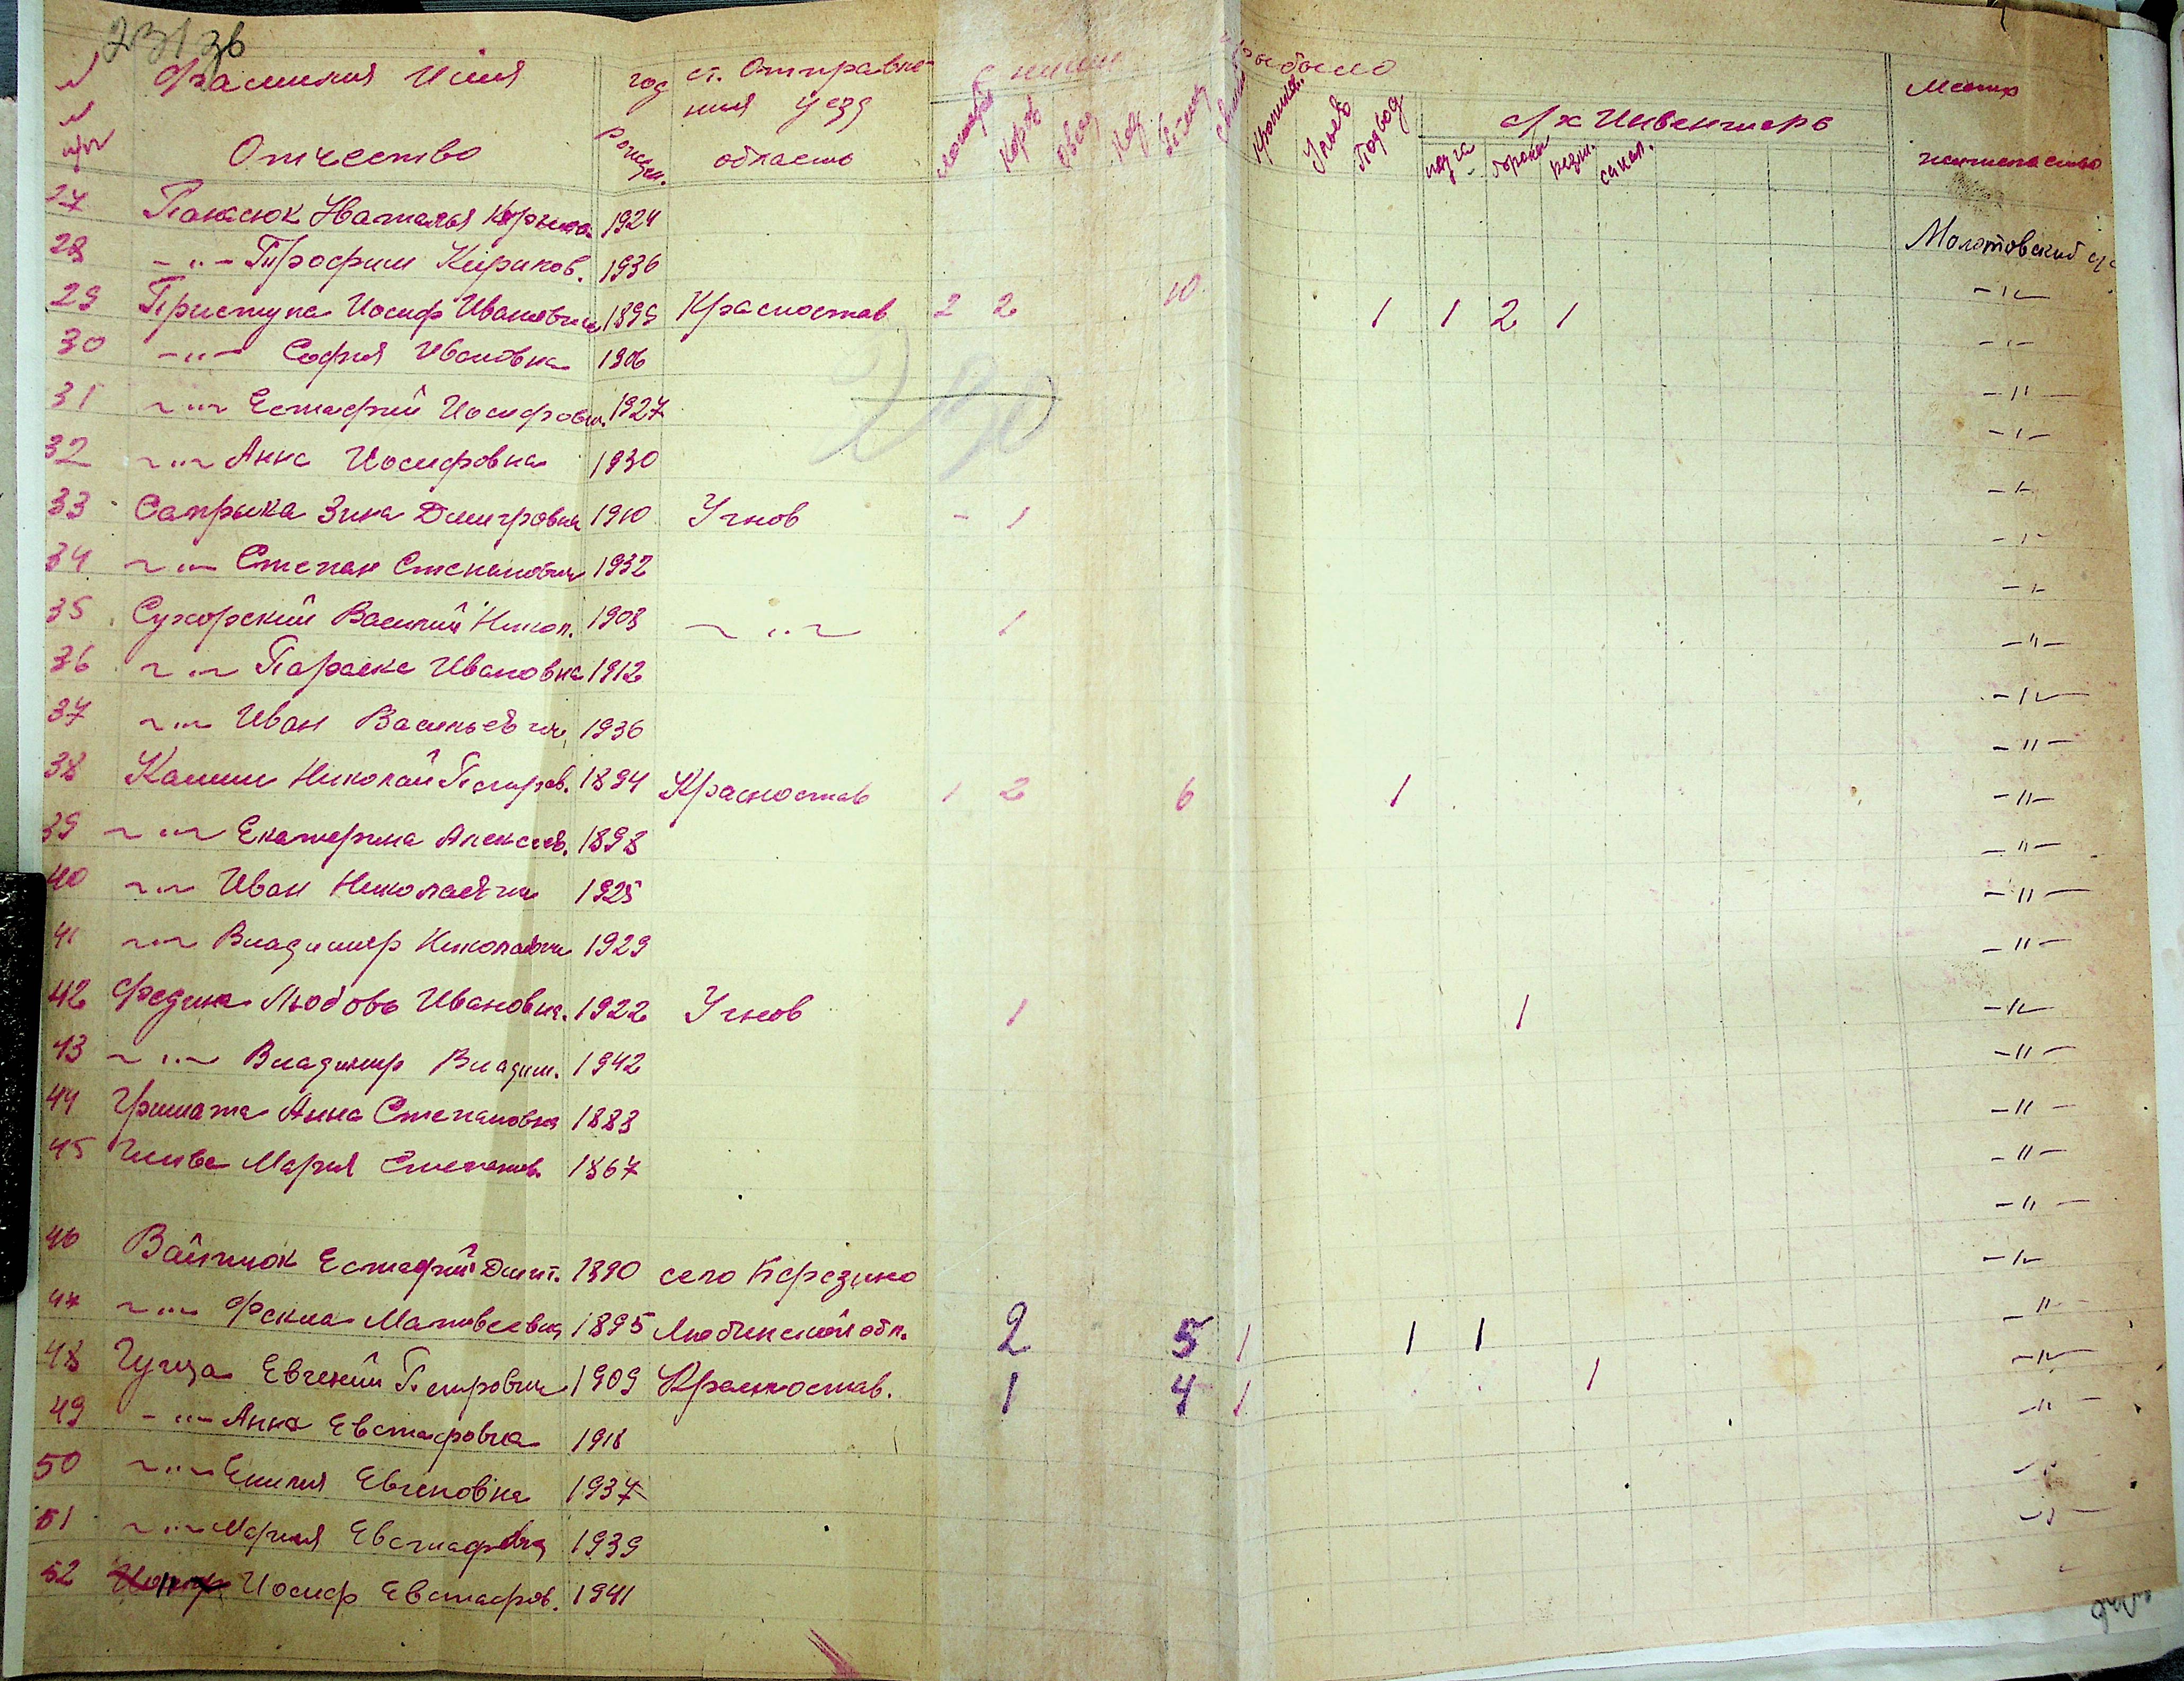 231 зв
Фамилия Имя
Отчество
год
Рожден.
ст. Отправле-
ния уезд
область
С ними прибыло
лошадей
Коров
Овец
Коз
Свиней
Ульев
Подвод
с/х Инвентарь
плуга
борона
сапал.
Место
жительство
27 Панасюк Наталья 1924
28 -"- Трофим Кирилов. 1936 Молотовский с/с
29 Приступа Иосиф Иванович 1899 Красностав 2 2 10 1 1 2 1 -"-
30 -"- София Ивановна 1906 -"-
31 -"- Естафий Иосифович 1927 -"-
32 -"- Анна Иосифовна 1930 -"-
33 Сапрыка Зина Дмитровна 1910 Угнов - 1 -"-
34 -"- Степан Степанович 1932 -"-
35 Сухорский Василий Никол. 1908 -"- 1 -"-
36 -"- Параска Ивановна 1912 -"-
37 -"- Иван Васильевич 1936 -"-
38 Калиш Николай Петров. 1894 Красностав 1 2 6 1 -"-
39 -"- Екатерина Алексеев. 1898 -"-
40 -"- Иван Николаевич 1925 -"-
41 -"- Владимир Николаевич 1929 -"-
42 Федина Любовь Ивановна. 1922 Угнов 1 1 -"-
43 -"- Владимир Владим. 1942 -"-
44 Анна Степановна 1883 -"-
45 Мария Степанов. 1867 -"-
46 Войтюк Естафий Дмит. 1890 село Березино -"-
47 -"- Фекла Матвеевна 1895 Люблинской обл. 2 5 1 1 1 -"-
48 Гуща Евгений Петрович 1909 Красностав. 1 4 1 1 -"-
49 -"- Анна Евстафовна 1918 -"-
50 -"- Емилия Евгеновна 1937 -"-
51 -"- Мария Евстафовна 1939 -"-
52 -"- Иосиф Евстафов. 1941
230